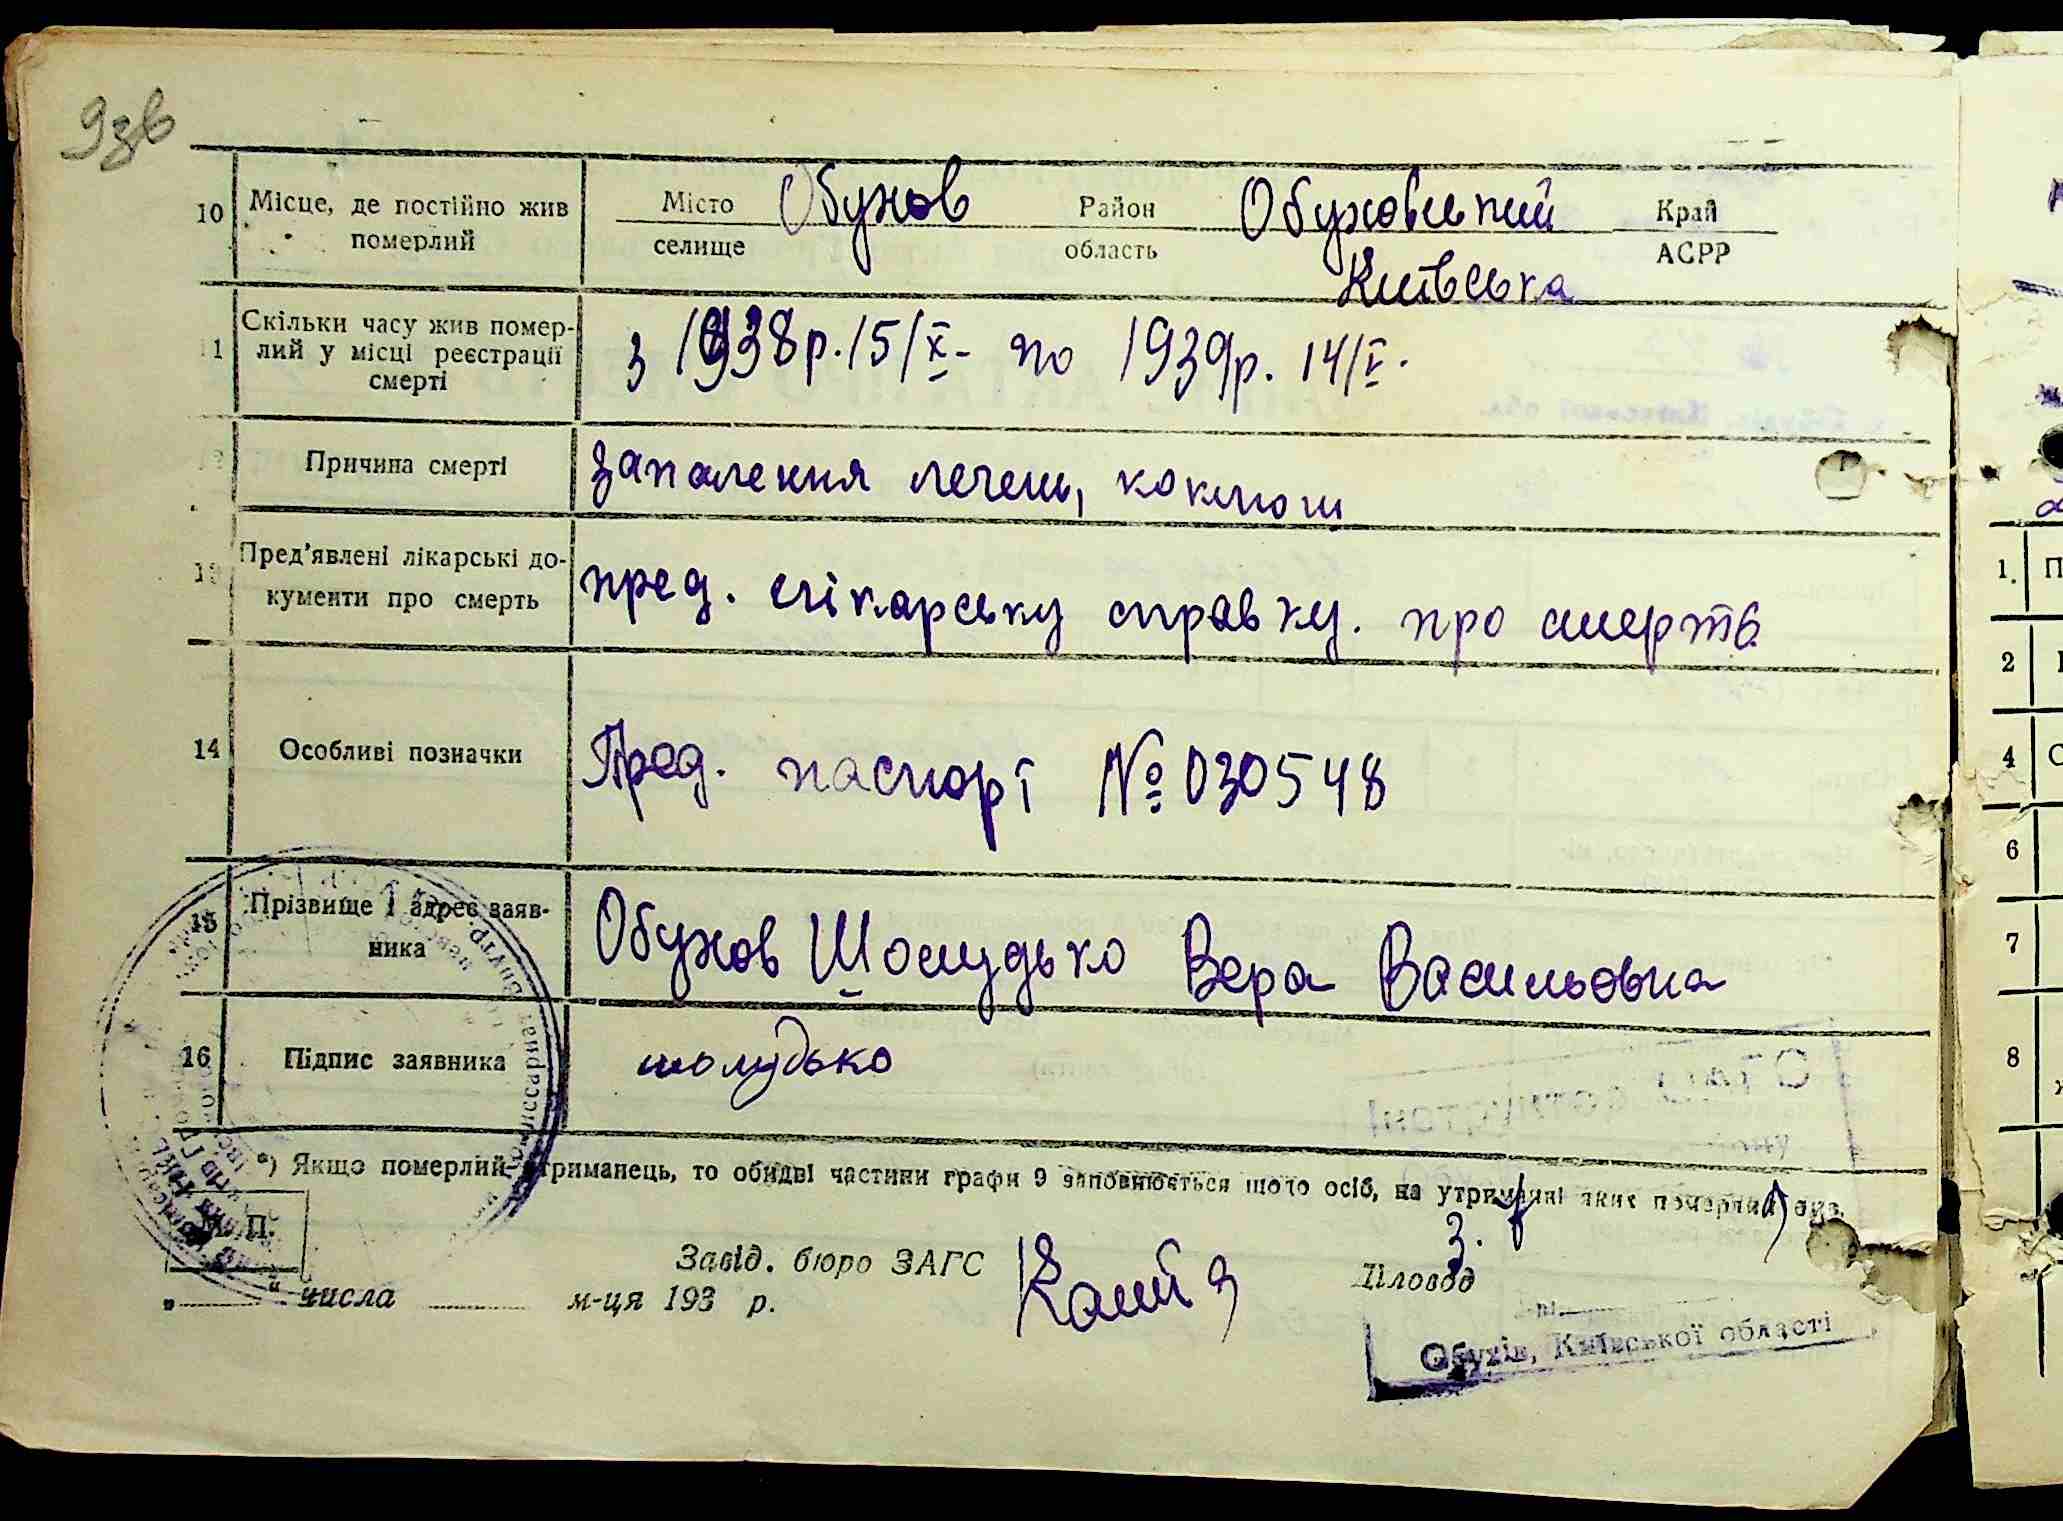 10 Місце, де постійно жив Місто Обухов Район Обуховський Край
померлий селище область Київська АСРР
11 Скільки часу жив помер-
лий у місці реєстрації з 1938р. 15/X- по 1939р. 14/V.
смерті
Причина смерті запалення легень, коклюш
Пред'явлені лікарські до-
кументи про смерть пред. лікарську справку. про смерть
14 Особливі позначки Пред. паспорт № 030548
15 Прізвище і адрес заяв-
ника Обухов Шолудько Вера Васильовна
16 Підпис заявника шолудько
*) Якщо померлий утриманець, то обидві частини графи 9 заповнюється щодо осіб, на утриманні яких померлий був.
М. П.
Завід. бюро ЗАГС Діловод
„ " числа м-ця 193 р.
Обухів, Київської області
1.
2
4
6
7
8